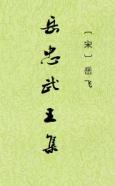 岳忠武王集
〔宋〕岳飞